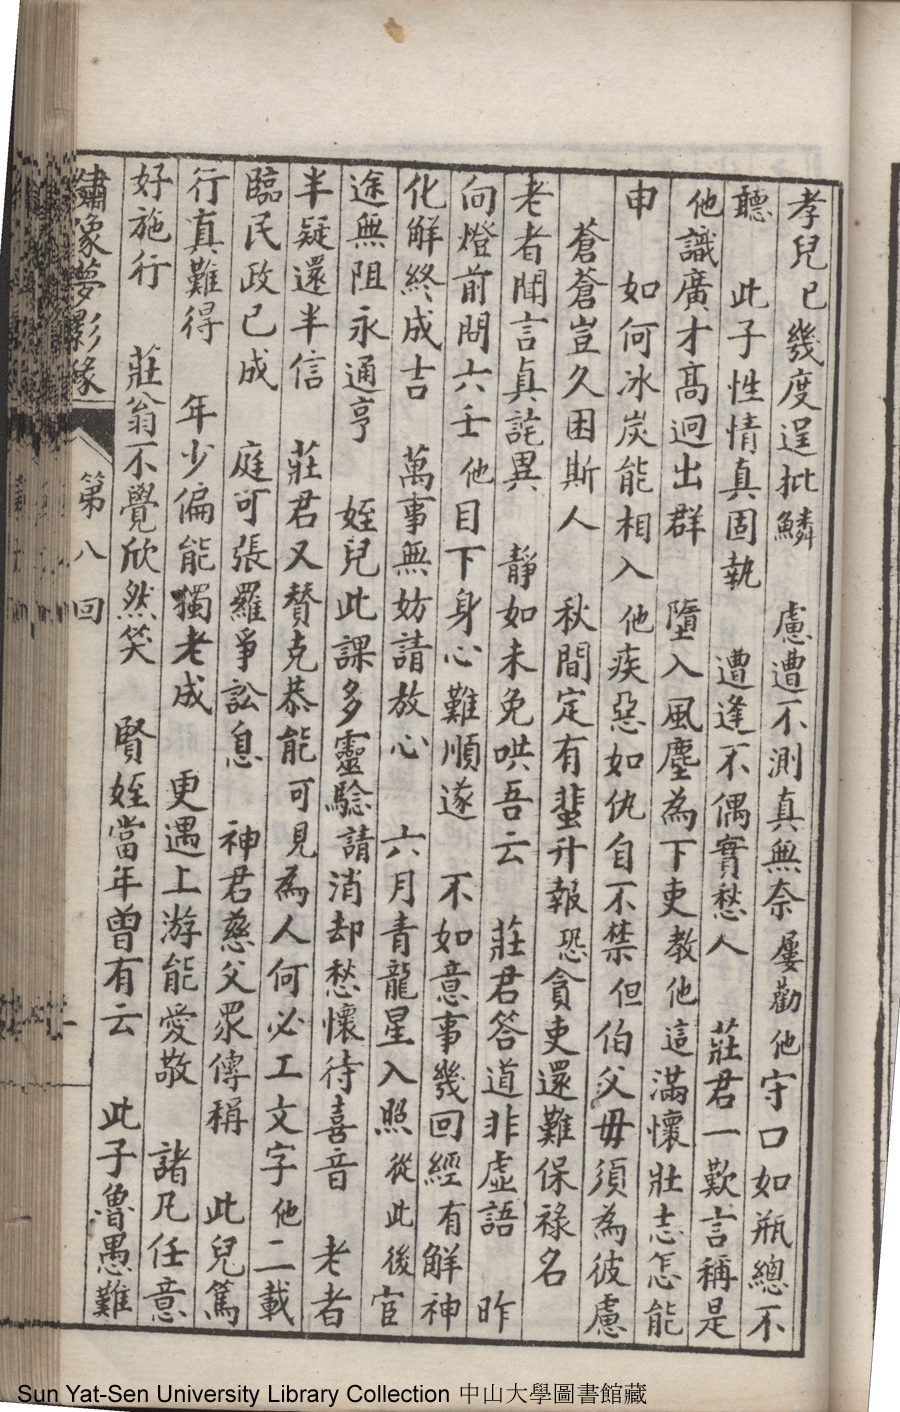 孝兒已幾度逞批鱗　慮遭不測真無奈　屢勸他守口如瓶總不
聽　此子性情真固執　遭逢不偶實愁人　莊君一歎言稱是
他識廣才高迥出群　墮入風塵為下吏　教他這滿懷壯志怎能
申　如何冰炭能相入　他疾惡如仇自不禁　但伯父毋須為彼慮
蒼蒼豈久困斯人　秋間定有蜚升報　恐貪吏還難保祿名
老者聞言真詫異　靜如未免哄吾云　莊君答道非虛語　昨
向燈前問六壬　他目下身心難順遂　不如意事幾回經　有解神
化解終成吉　萬事無妨請放心　六月青龍星入照　從此後宦
途無阻永通亨　姪兒此課多靈驗　請消却愁懷待喜音　老者
半疑還半信　莊君又贊克恭能　可見為人何必工文字　他二載
臨民政已成　庭可張羅爭訟息　神君慈父眾傳稱　此兒篤
行真難得　年少偏能獨老成　更遇上游能愛敬　諸凡任意
好施行　莊翁不覺欣然笑　賢姪當年曾有云　此子魯愚難
繡像夢影緣　第八回
Sun Yat-Sen University Library Collection 中山大學圖書館藏